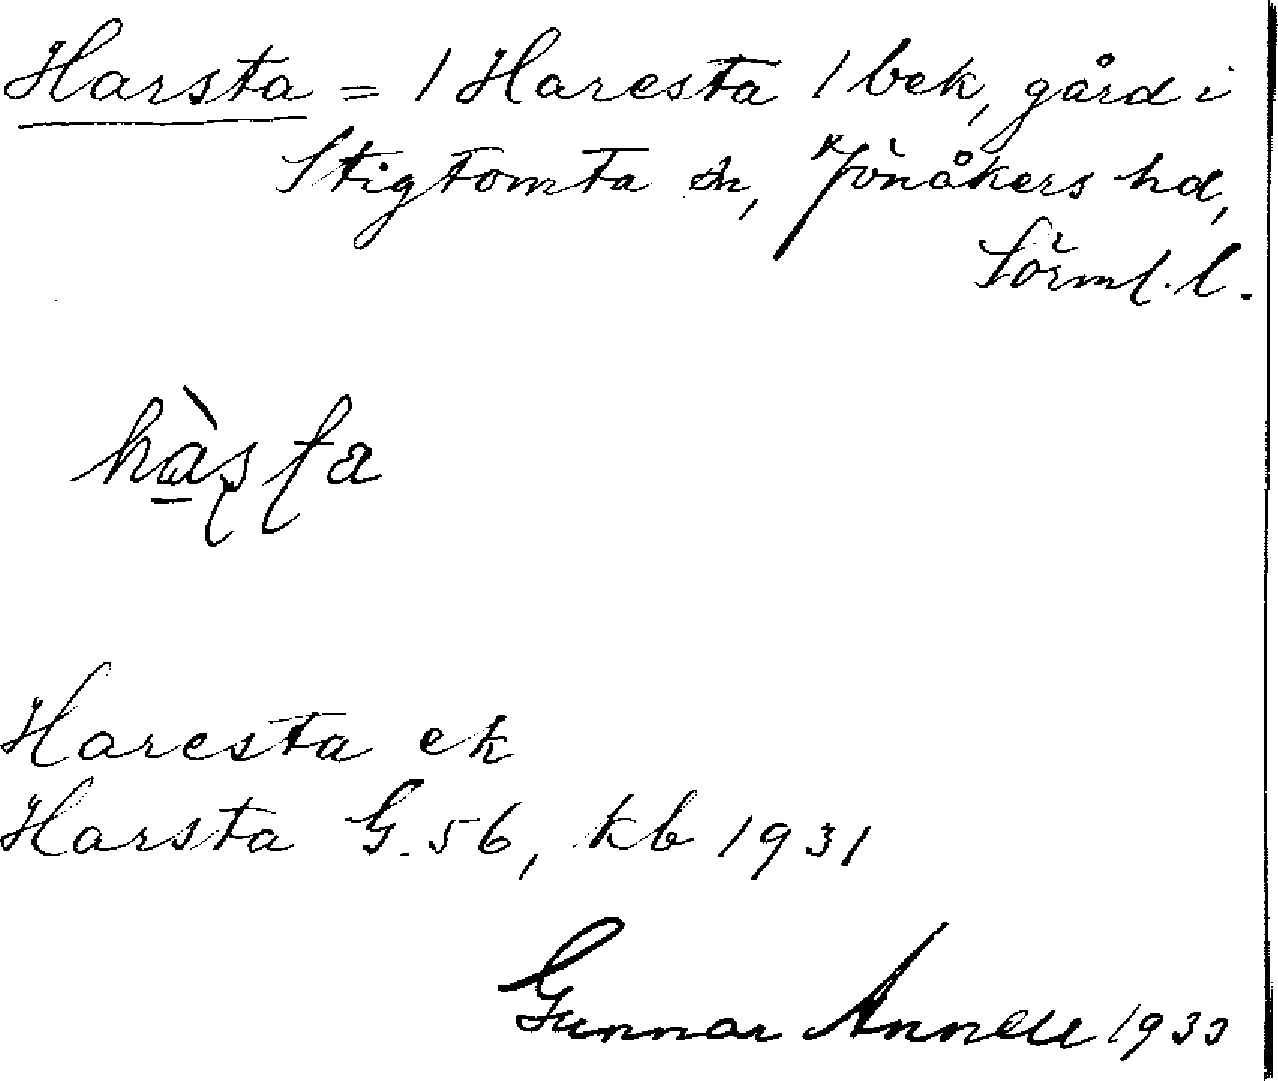 Harsta = / Haresta / bek, gård i
Stigtomta sn, Jönåkers hd,
Sörml. l.
Haresta ek
Harsta G. 56, kb 1931
Gunnar Annell 1933